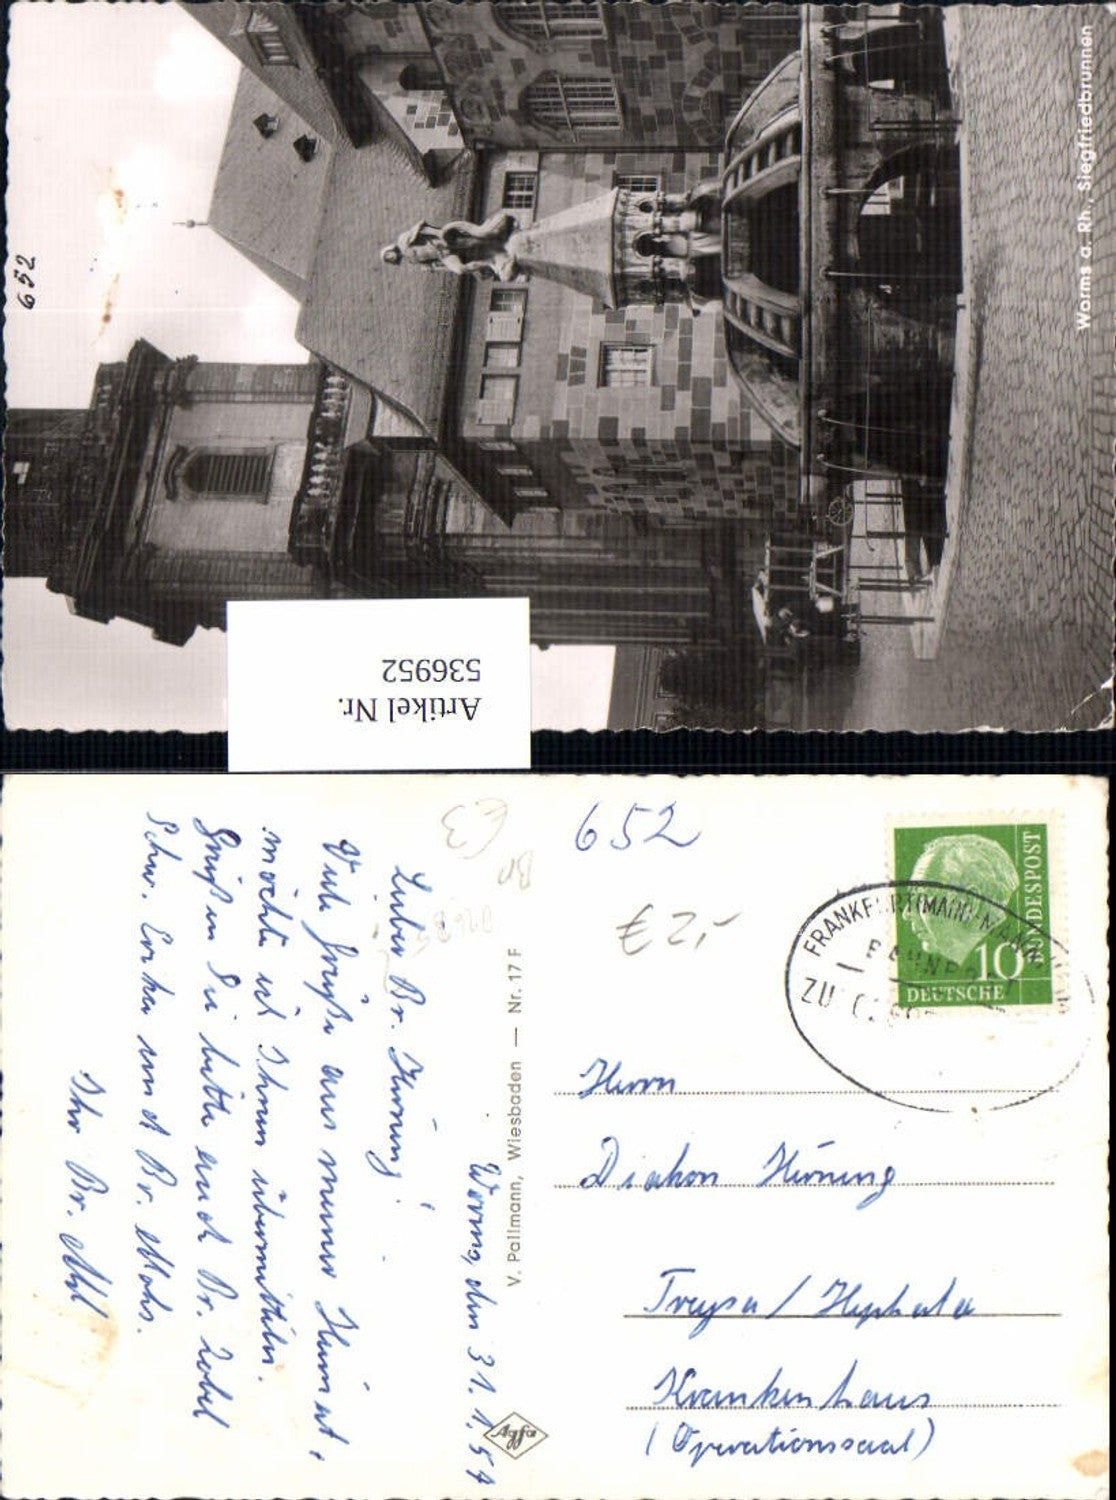 Worms a. Rh., Siegfriedbrunnen
652
Artikel Nr.
536952
652
€ 2,-
€3
BUNDESPOST
10
DEUTSCHE
BAHNPOST
V. Pallmann, Wiesbaden — Nr. 17 F
Agfa
Worms, den 31. 1. 57
Lieber Br. Hünung!
Viele Grüße aus meiner Heimat,
möchte ich Ihnen übermitteln.
Grüßen Sie bitte auch Br. Zobel
Schw. Erika und Br. Mohs.
Ihr Br.
Herrn
Diakon Hünung
Treysa / Hephata
Krankenhaus
(Operationssaal)